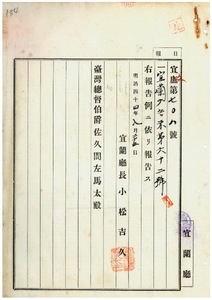 184
日
報
宜庶第七〇八號
第六十二號
右報告例ニ依リ報告ス
明治四十四年九月
宜蘭廳長 小松吉久
臺灣總督伯爵佐久間左馬太殿
宜蘭廳